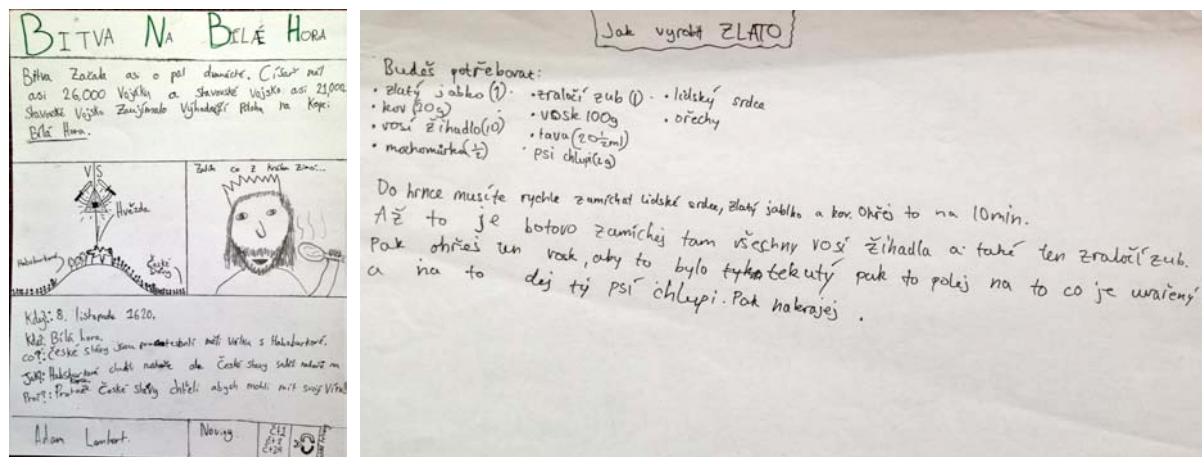 BITVA NA BÍLÁÉ HORA
Bitva Začala asi o půl dvanácté. Císař měl
asi 26,000 Vojáků a stavovské Vojsko asi 21,000
stavovské Vojsko Zaujímalo Výhodnější Polohu na Kopci
Bílá Hora.
V S
Hvězda
Habsburkové
České
Zatím co z Králem Zimní...
Když: 8. listopadu 1620.
Kde: Bílá hora.
co?: České stavy jsou měli Válku s Habsburkové.
Jak?: Habsburkové chtěli ale České Stavy na
Proč?: Protože České Stavy chtěli abych mohli mít svojí Víru
Adam Lambert.
Noviny
Jak vyrobit ZLATO
Budeš potřebovat:
• zlatý jabko (1) • zraločí zub (1) • lidský srdce
• kov (20g) • vosk 100g • ořechy
• vosí žihadlo (10) • tava (20½ml)
• mochomůrka (½) • psi chlupi (2g)
Do hrnce musíte rychle zamíchat lidské srdce, zlatý jablko a kov. Ohřej to na 10min.
Až to je botovo zamíchej tam všechny vosí žihadla a také ten zraločí zub.
Pak ohřeš un vosk, aby to bylo tekutý pak to polej na to co je uvařený
a na to dej tý psí chlupi. Pak nakrájej.